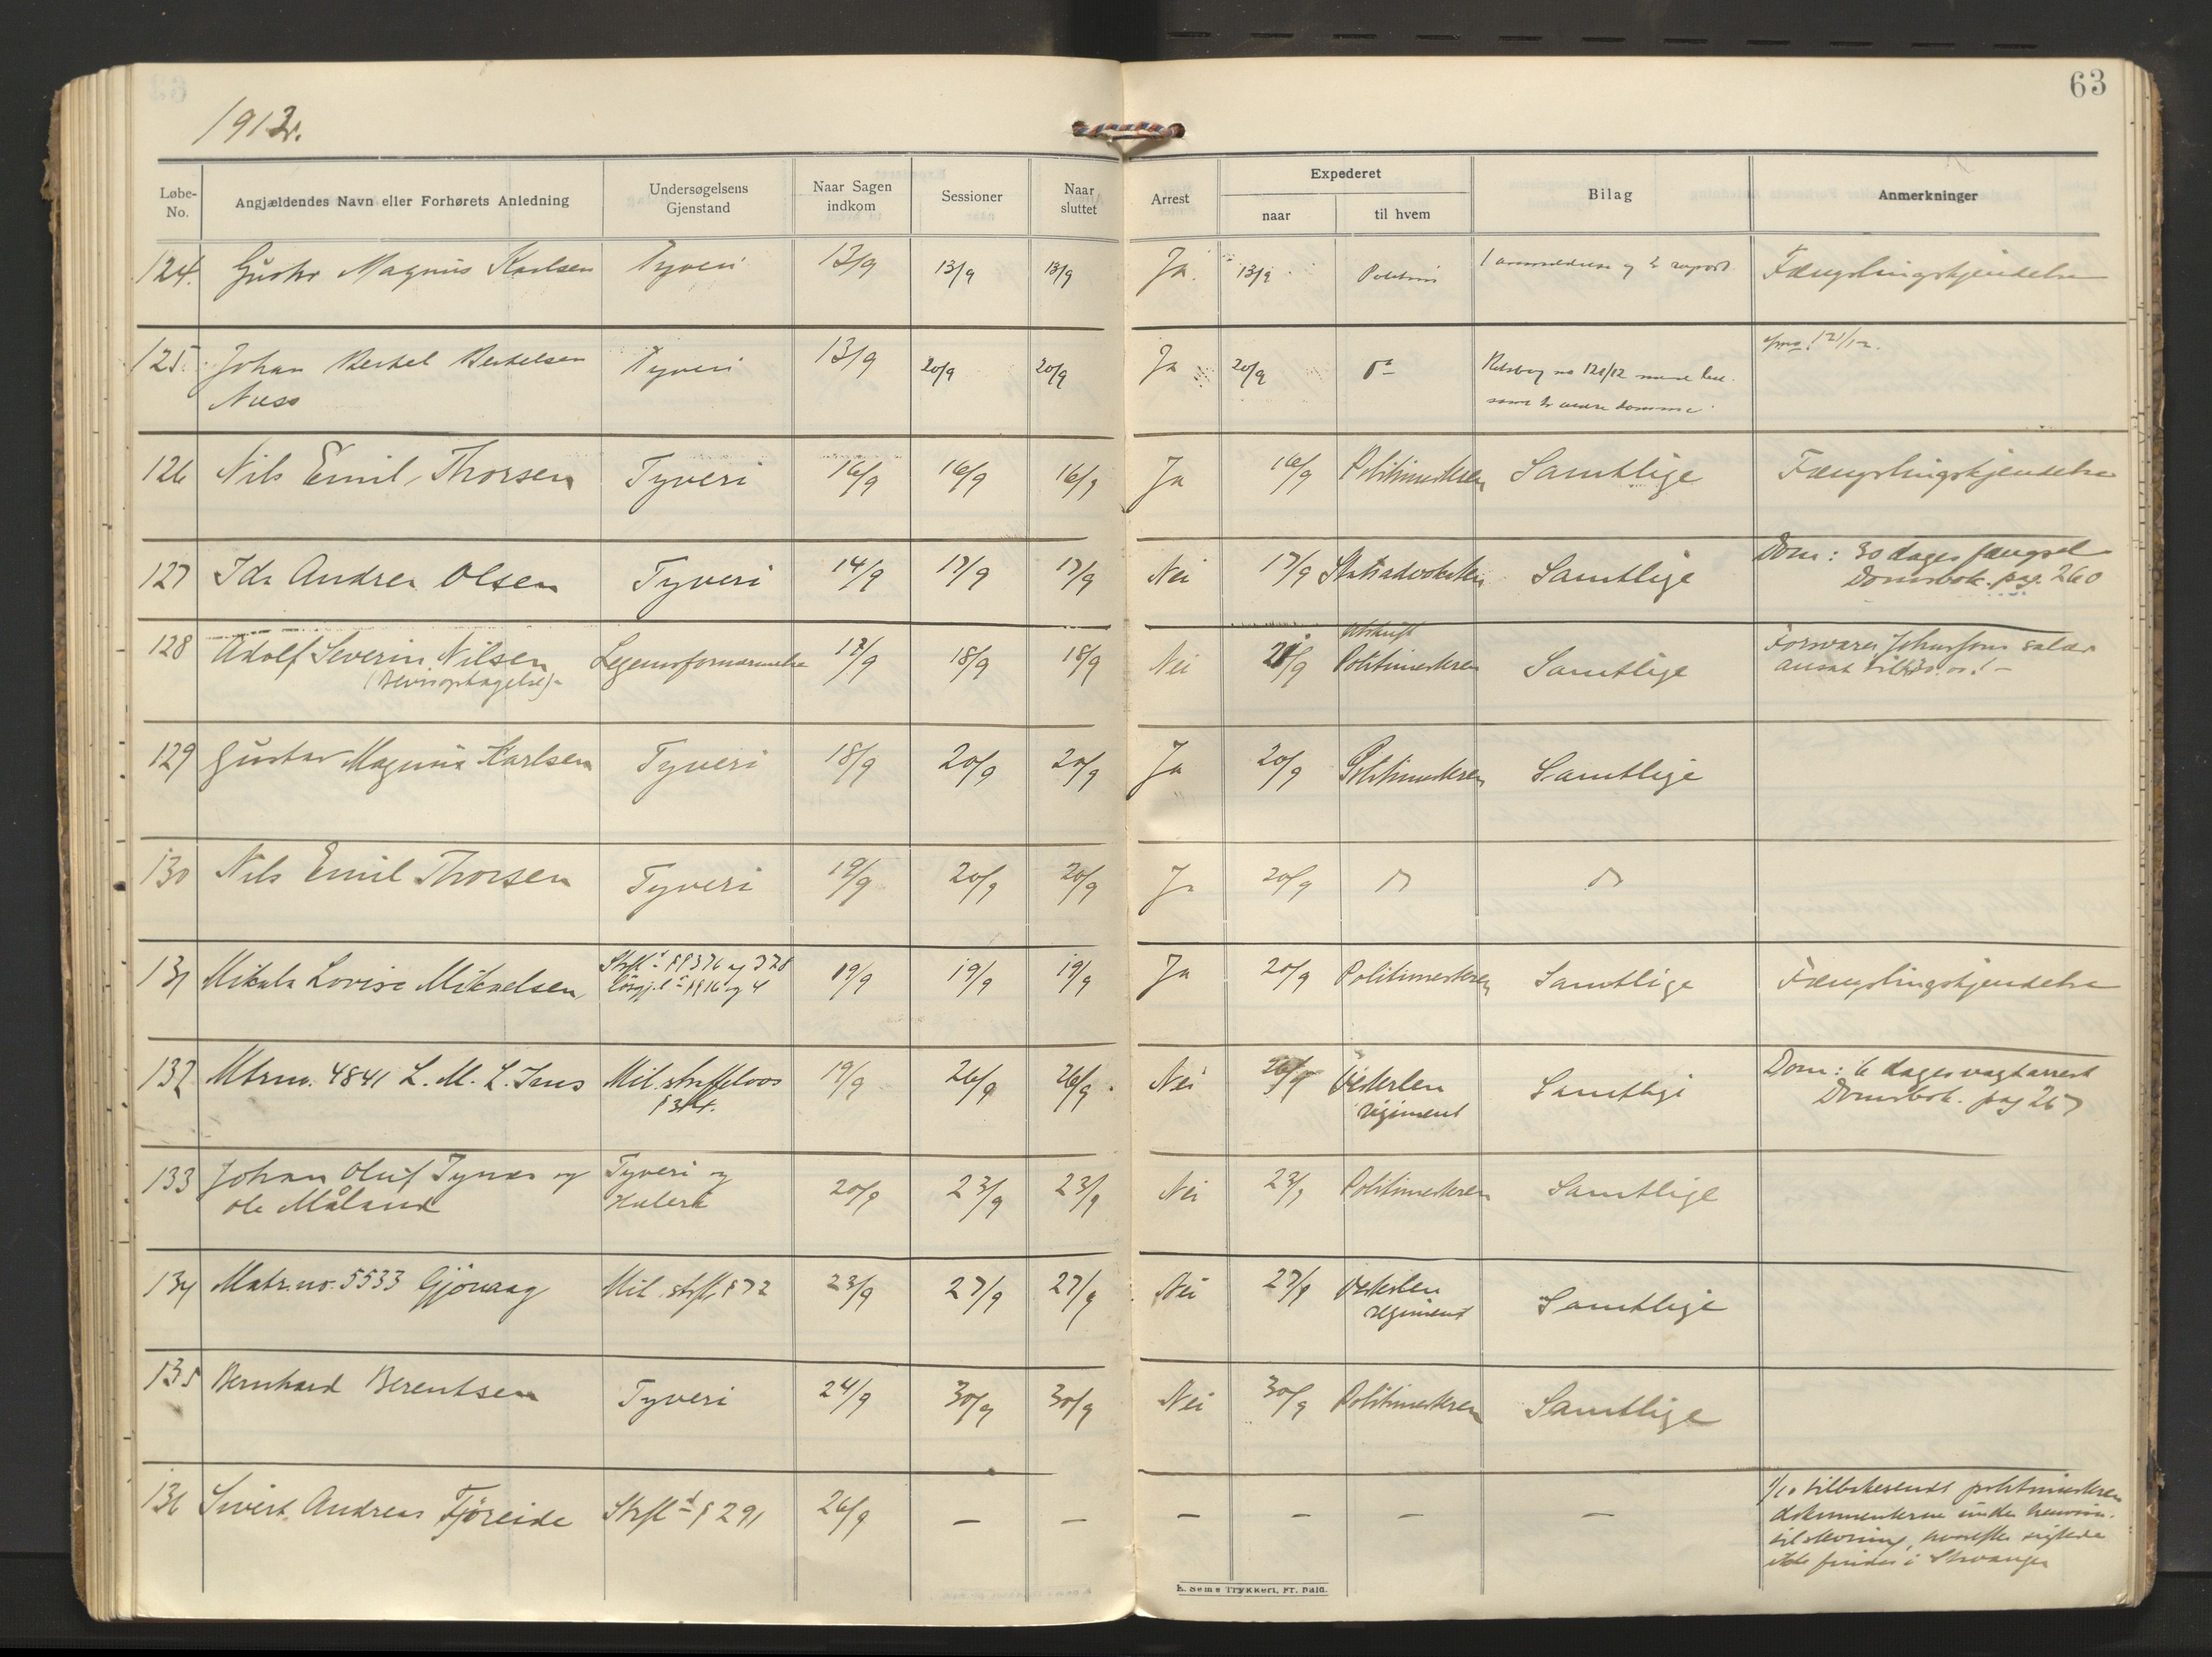 63
1912.
Løbe-No. Angjældendes Navn eller Forhørets Anledning Undersøgelsens Gjenstand Naar Sagen indkom Sessioner Naar sluttet Arrest Expederet naar til hvem Bilag Anmerkninger
124. Gustav Magnus Karlsen Tyveri 13/9 13/9 13/9 Ja. 13/9 Politim 1 anmeldelse og 2 rapport Fængslingskjendelse
125. Johan Bertel Bertelsen Tyveri 13/9 20/9 20/9 Ja 20/9 do no 121/12 121/12.
Næss samt 2 andre domme
126 Nils Emil Thorsen Tyveri 16/9 16/9 16/9 Ja 16/9 Politimesteren Samtlige Fængslingskjendelse
127 Ida Andrea Olsen Tyveri 14/9 17/9 17/9 Nei 17/9 Statsadvokaten Samtlige Dom: 30 dages fængsel
Domsbok. pag. 260
128 Adolf Severin Nilsen Legemsfornærmelse 17/9 18/9 18/9 Nei 21/9 Utskrift Politimesteren Samtlige Forsvarer Johnsons salær
(Bevisoptagelse) ansat til
129 Gustav Magnus Karlsen Tyveri 18/9 20/9 20/9 Ja 20/9 Politimesteren Samtlige
130 Nils Emil Thorsen Tyveri 19/9 20/9 20/9 Ja 20/9 do do
131 Mikala Lovise Mikaelsen, Strfl §§ 376 og 378 19/9 19/9 19/9 Ja 20/9 Politimesteren Samtlige Fængslingskjendelse
Løsgj.l §§ 16 og 4
132 Mtrno. 4841 L. M. L. Jans Mil. straffelovs 19/9 26/9 26/9. Nei 26/9 Vesterlen Samtlige Dom: 6 dages vagtarrest
§ 34. regiment Domsbok. pag 267
133 Johan Oluf Tynes og Tyveri og 20/9 23/9 23/9 Nei 23/9 Politimesteren Samtlige
Ole Måland Hæleri
134 Matr.no. 5533 Gjövaag Mil. strfl. § 72 23/9 27/9 27/9 Nei 27/9 Vesterlen Samtlige
regiment
135 Bernhard Berentsen Tyveri 24/9 30/9 30/9 Nei 30/9 Politimesteren Samtlige
136 Sivert Andreas Fjöreide Strfl § 291 26/9 – – – – – – 1/10 tilbakesendt politimesteren
dokumenterne under henvis-
til skrivning, hvorefter sigtede
ikke findes i Stavanger
E. Sems Trykkeri, Fr. hald.